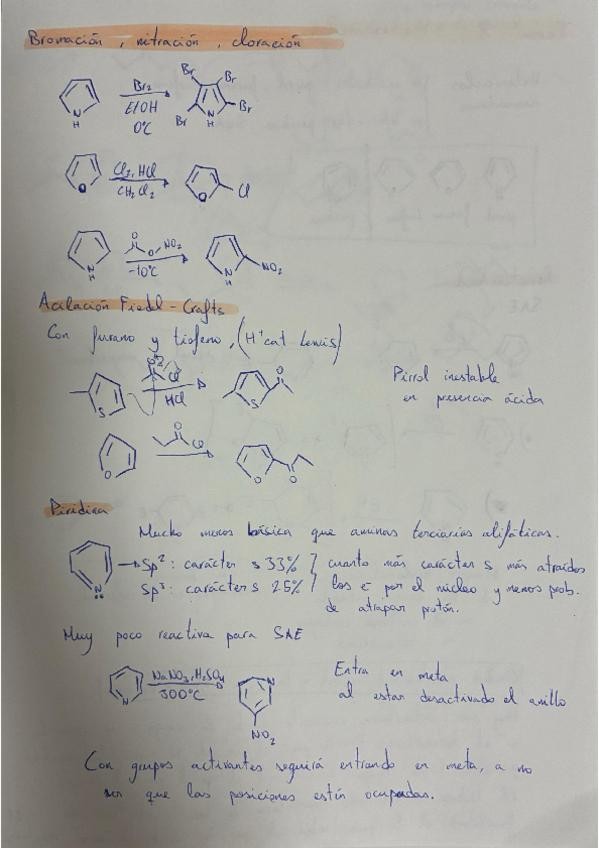 Bromación, nitración, cloración
Br2
EtOH
0°C
N
H
Br
Br
Br
Br
N
H
Cl2, HCl
CH2Cl2
O
O
Cl
N
H
O
O
NO2
-10°C
N
H
NO2
Acilación Fiedl-Crafts
Con furano y tiofeno, (H+ cat Lewis)
S
O
Cl
HCl
S
O
Pirrol inestable
en presencia ácida
O
O
Cl
O
O
Piridina
Mucho menos básica que aminas terciarias alifáticas.
N
Sp2: carácter s 33% } cuanto más carácter s más atraídos
Sp3: carácter s 25% } los e- por el núcleo y menos prob.
de atrapar protón.
Muy poco reactiva para SAE
N
NaNO3, H2SO4
300°C
N
NO2
Entra en meta
al estar desactivado el anillo
Con grupos activantes seguirá entrando en meta, a no
ser que las posiciones estén ocupadas.